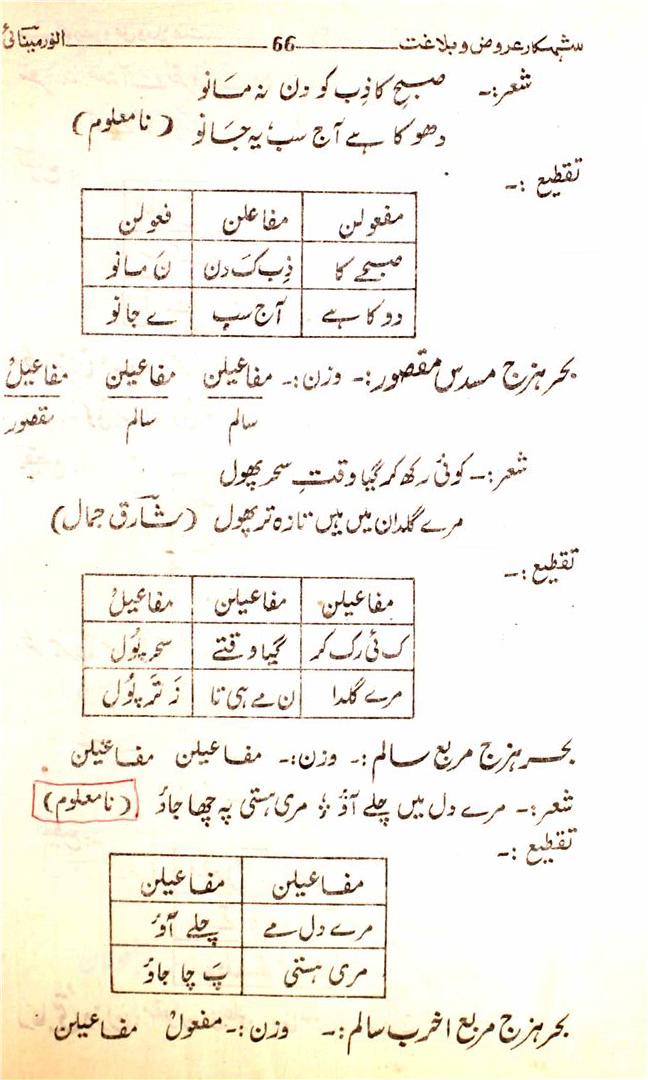 شہکار عروض و بلاغت 66 انور مینائی
شعر:۔ صبحِ کاذِب کو دن نہ مانو
دھوکا ہے آج سب یہ جانو (نامعلوم)
تقطیع :۔
مفعولن مفاعلن فعولن
صبحے کا ذِب کَ دن نَ مانو
دو کا ہے آج سب ے جانو
بحر ہزج مسدس مقصور:۔ وزن:۔ مفاعیلن مفاعیلن مفاعیلْ
سالم سالم مقصور
شعر:۔ کوئی رکھ کر گیا وقتِ سحر پھول
مرے گلدان میں ہیں تازہ تر پھول (شارق جمال)
تقطیع :۔
مفاعیلن مفاعیلن مفاعیلْ
کئی رک کر گیا وقتے سحر پُول
مرے گلدا ن مے ہی تا زَ تَر پُول
بحر ہزج مربع سالم:۔ وزن:۔ مفاعیلن مفاعیلن
شعر:۔ مرے دل میں چلے آؤ ؛ مری ہستی پہ چھا جاؤ (نامعلوم)
تقطیع :۔
مفاعیلن مفاعیلن
مرے دل مے چلے آؤ
مری ہستی پَ چا جاؤ
بحر ہزج مربع اخرب سالم:۔ وزن:۔ مفعولُ مفاعیلن